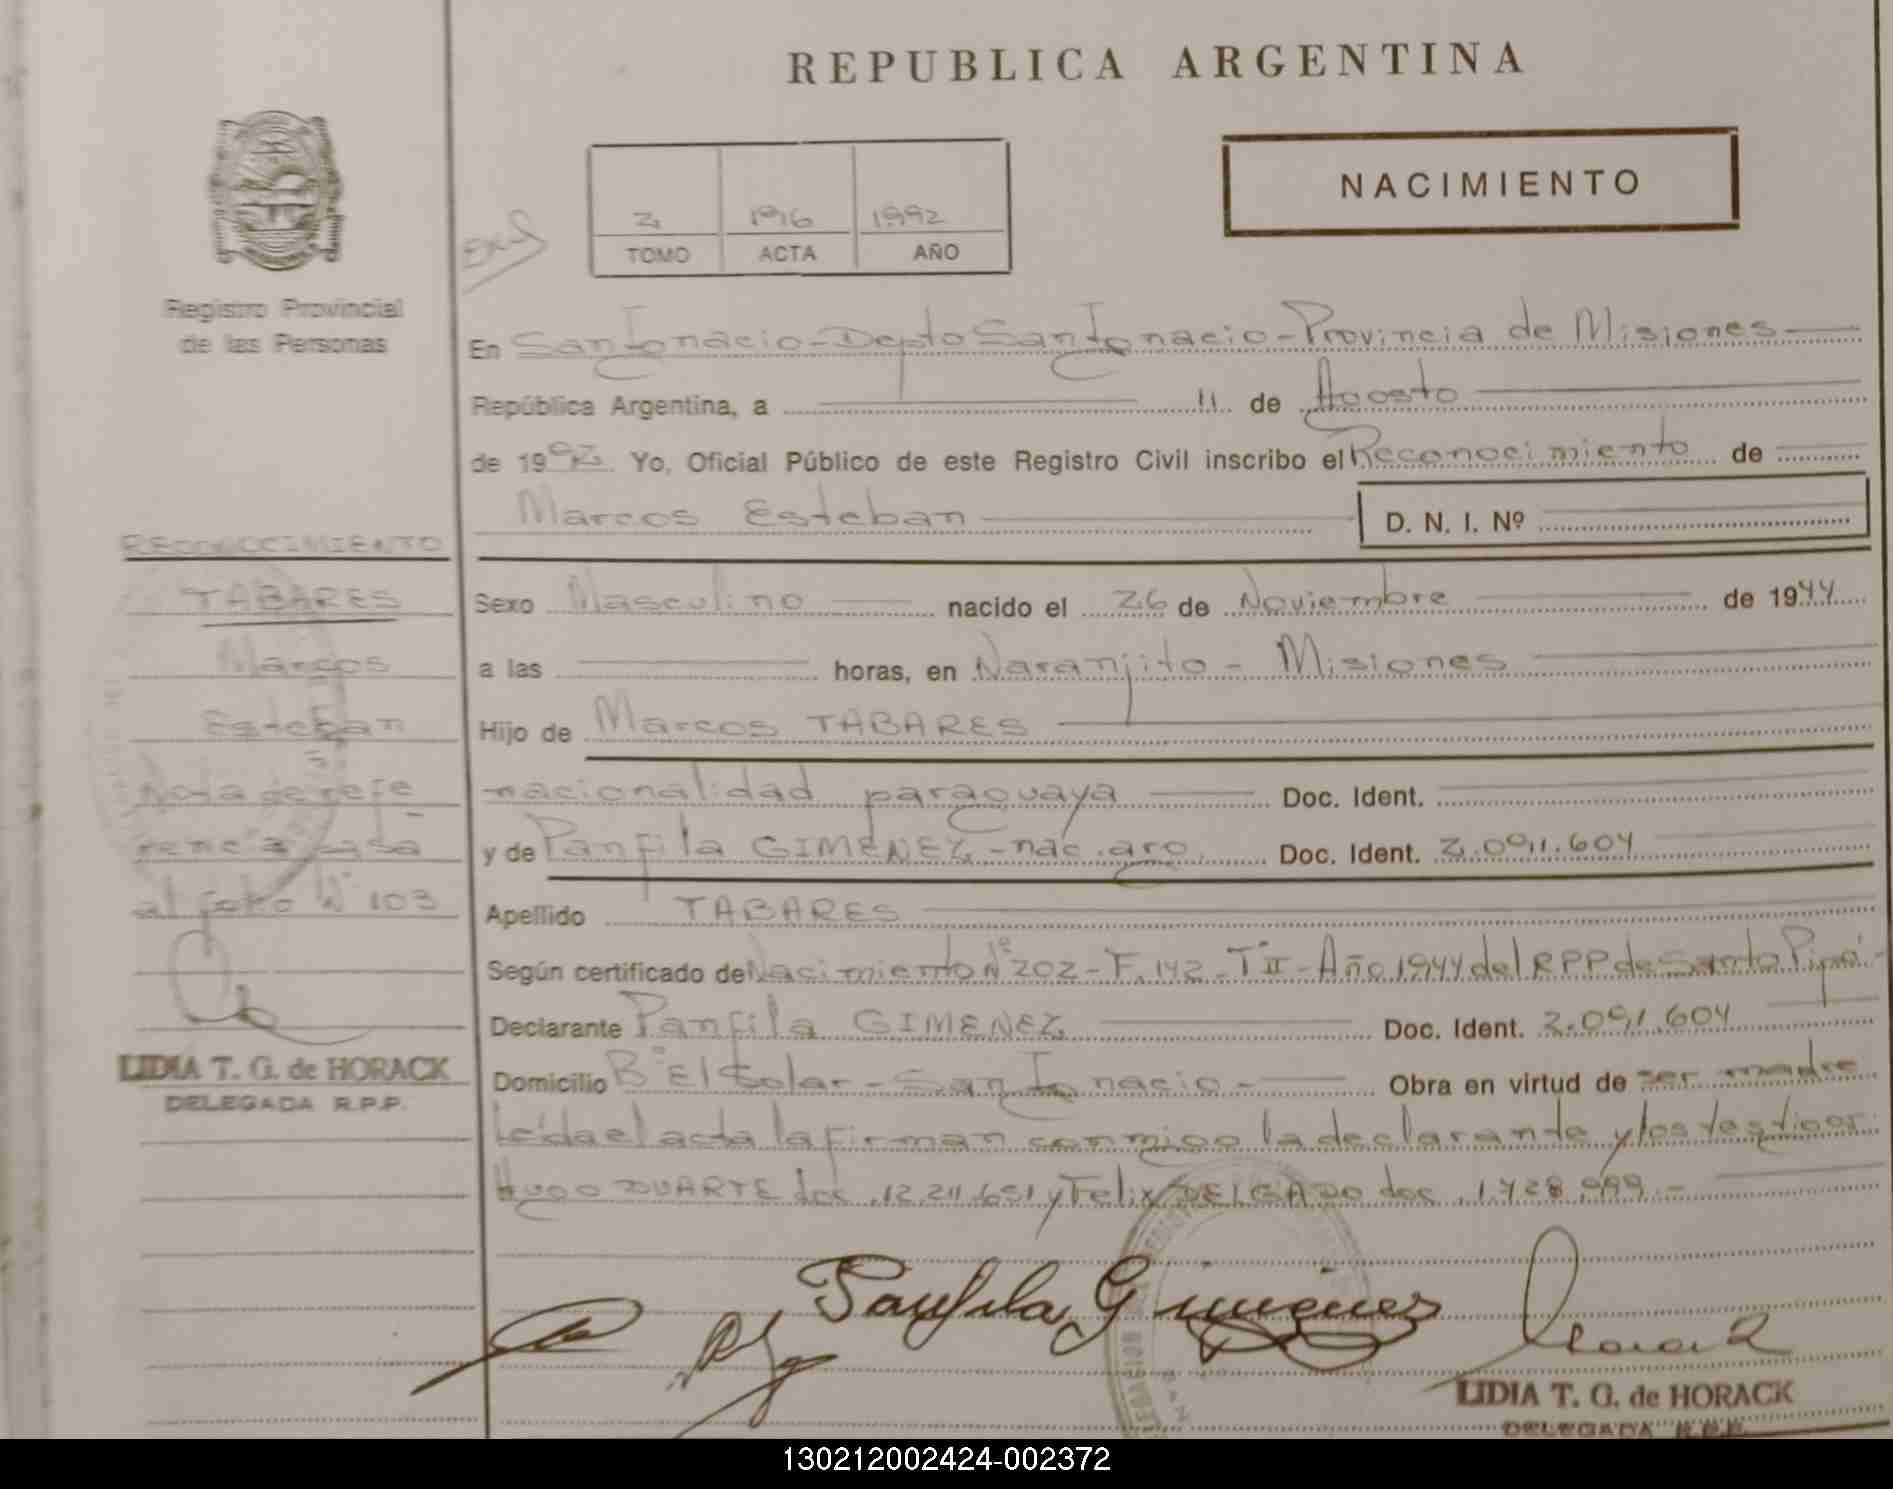 REPUBLICA ARGENTINA
NACIMIENTO
1992
TOMO ACTA AÑO
Registro Provincial
de las Personas
En San Ignacio - Depto San Ignacio - Provincia de Misiones
República Argentina, a 11 de Agosto
de 1992 Yo, Oficial Público de este Registro Civil inscribo el Reconocimiento de
Marcos Esteban D. N. I. Nº
RECONOCIMIENTO
TABARES
Marcos
Esteban
Nota de refe
rencia
al folio Nº 103
LIDIA T. G. de HORACK
DELEGADA R.P.P.
Sexo Masculino nacido el 26 de Noviembre de 1944
a las horas, en Naranjito - Misiones
Hijo de Marcos TABARES
nacionalidad paraguaya Doc. Ident.
y de Panfila GIMENEZ - nac. arg. Doc. Ident. 2.091.604
Apellido TABARES
Según certificado de Nacimiento Nº 202 - F. 142 - T II - Año 1944 del RPP de Santo Pipó -
Declarante Panfila GIMENEZ Doc. Ident. 2.091.604
Domicilio Bº El Solar - San Ignacio - Obra en virtud de ser madre
Leída el acta la firman conmigo la declarante y los testigos:
Hugo DUARTE doc. 12.211.651 y Felix DELGADO doc. 1.728.999.-
Panfila Gimenez
LIDIA T. G. de HORACK
DELEGADA R.P.P.
130212002424-002372